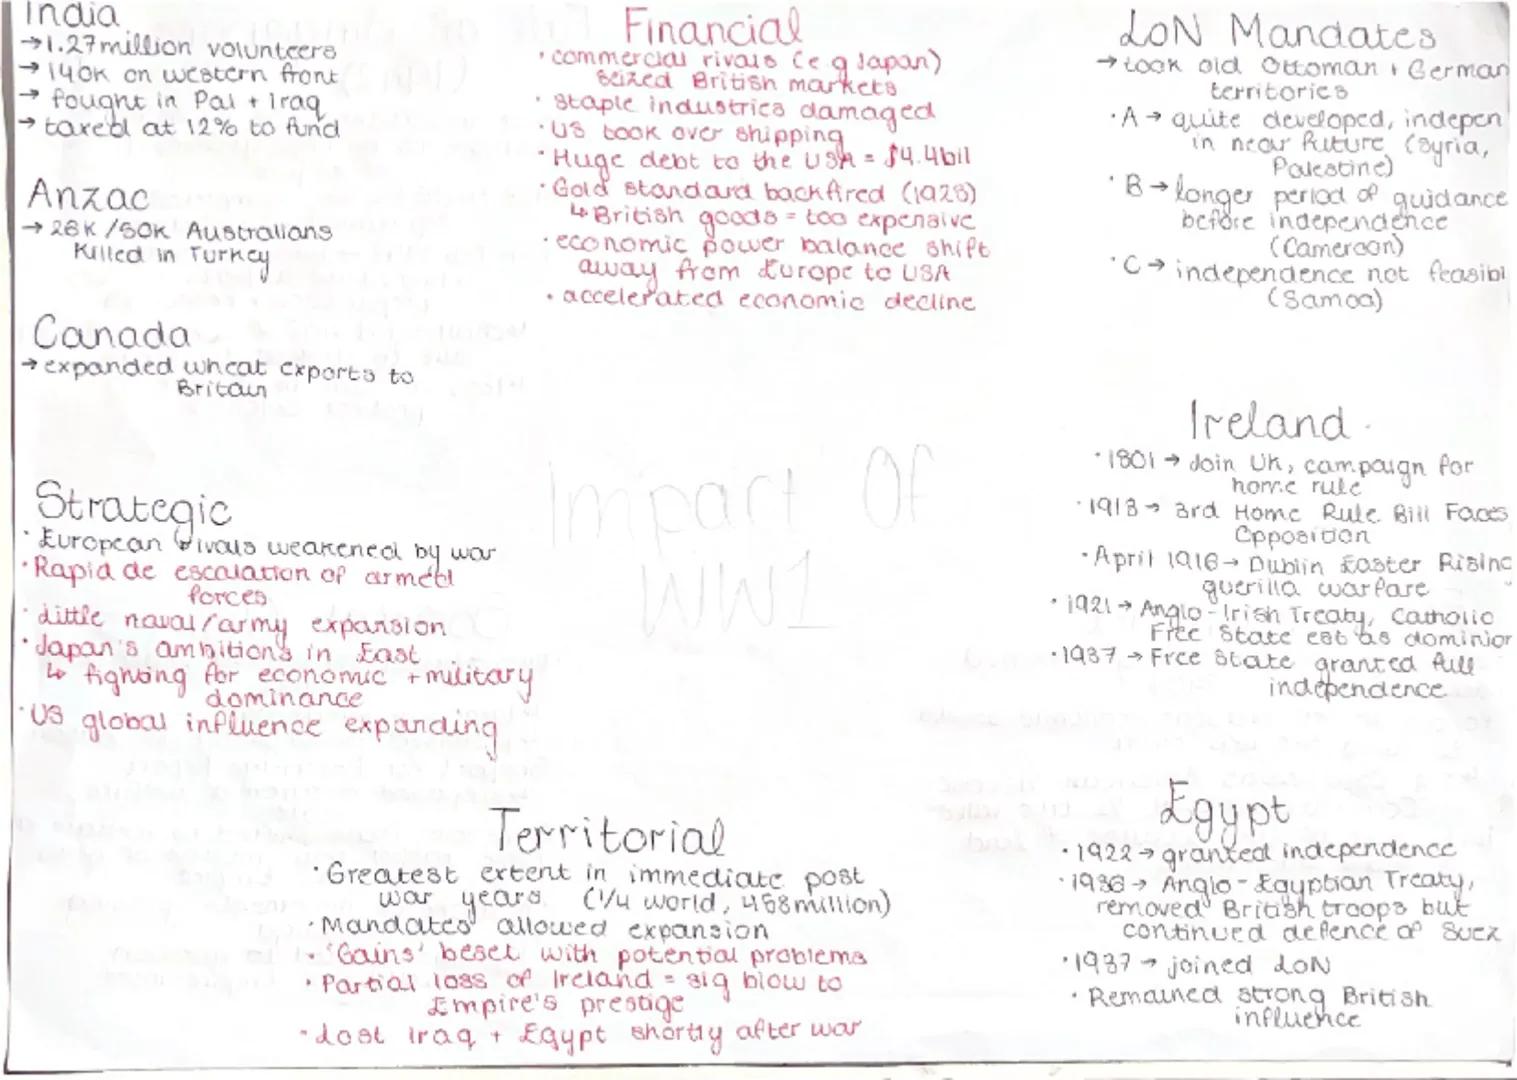 India
→1.27 million volunteers
→ 140K on western front
→ fought in Pal + Iraq
→ taxed at 12% to fund
Anzac
→ 28K/50K Australians
Killed in Turkey
Canada
→ expanded wheat exports to
Britain
Strategic
· European rivals weakened by war
· Rapid de escalation of armed
forces
· little naval/army expansion
· Japan's ambitions in East
↳ fighting for economic + military
dominance
· US global influence expanding
Financial
· commercial rivals (e.g Japan)
seized British markets
· staple industries damaged
· US took over shipping
· Huge debt to the USA = $4.4bil
· Gold standard backfired (1925)
↳ British goods = too expensive
· economic power balance shift
away from Europe to USA
· accelerated economic decline
Impact Of
WW1
Territorial
· Greatest extent in immediate post
war years. (1/4 world, 458million)
· Mandates allowed expansion
· 'Gains' beset with potential problems
· Partial loss of Ireland = sig blow to
Empire's prestige
· Lost Iraq + Egypt shortly after war
LoN Mandates
→ took old Ottoman + German
territories
· A → quite developed, indepen
in near future (Syria,
Palestine)
· B → longer period of guidance
before independence
(Cameroon)
· C → independence not feasibl
(Samoa)
Ireland
· 1801 → Join UK, campaign for
home rule
· 1913 → 3rd Home Rule Bill Faces
Opposition
· April 1916 → Dublin Easter Rising
guerilla warfare
· 1921 → Anglo-Irish Treaty, Catholic
Free State est as dominion
· 1937 → Free State granted full
independence
Egypt
· 1922 → granted independence
· 1936 → Anglo-Egyptian Treaty,
removed British troops but
continued defence of Suez
· 1937 → joined LoN
· Remained strong British
influence